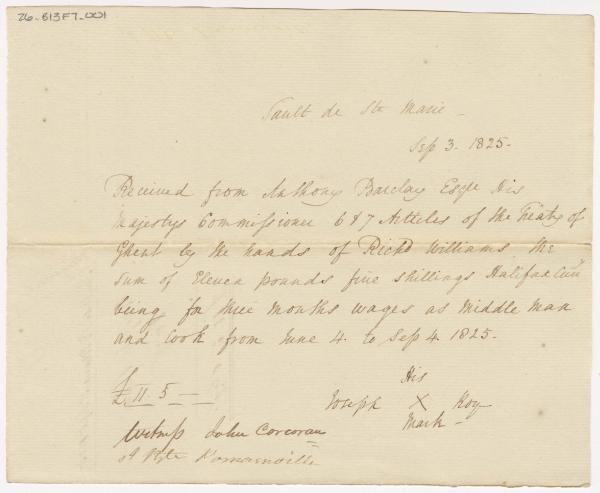 26-B13F7-001
Sault de Ste Marie
Sep 3. 1825-
Received from Anthony Barclay Esqr His
Majestys Commissioner 6 & 7 Articles of the Treaty of
Ghent by the hands of Richd Williams the
sum of Eleven pounds five shillings Halifax Cur
being for three months wages as Middle Man
and Cook from June 4. to Sep 4 1825-
£ 11 5 —
His
Joseph X Roy
Mark -
Witness John Corcoran